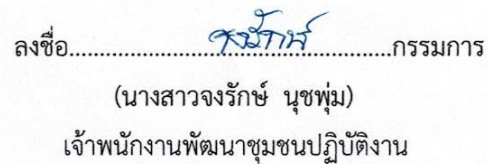 ลงชื่อ................จงรักษ์................กรรมการ
(นางสาวจงรักษ์ นุชพุ่ม)
เจ้าพนักงานพัฒนาชุมชนปฏิบัติงาน